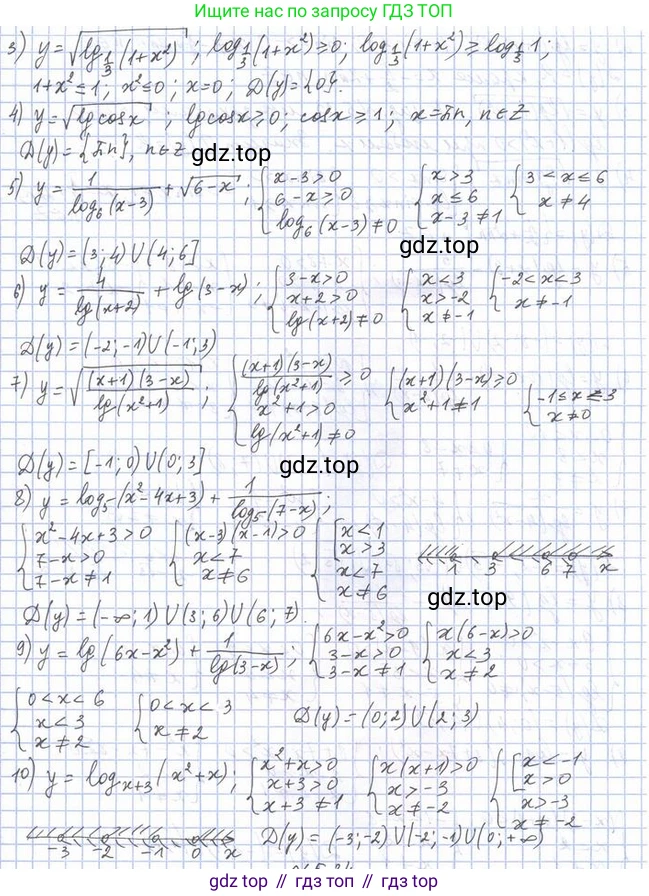 Ищите нас по запросу ГДЗ ТОП
3) y = √(lg_{1/3}(1+x²)) ; log_{1/3}(1+x²) ≥ 0; log_{1/3}(1+x²) ≥ log_{1/3} 1;
1+x² ≤ 1; x² ≤ 0; x = 0; D(y) = {0}.
4) y = √(lg cos x) ; lg cos x ≥ 0; cos x ≥ 1; x = πn, n ∈ Z
D(y) = {πn}, n ∈ Z
gdz.top
5) y = 1/(log₆(x-3)) + √(6-x) ; { x-3 > 0; 6-x ≥ 0; log₆(x-3) ≠ 0 { x > 3; x ≤ 6; x-3 ≠ 1 { 3 < x ≤ 6; x ≠ 4
gdz.top
D(y) = (3; 4) ∪ (4; 6]
6) y = 4/(lg(x+2)) + lg(3-x) ; { 3-x > 0; x+2 > 0; lg(x+2) ≠ 0 { x < 3; x > -2; x ≠ -1 { -2 < x < 3; x ≠ -1
D(y) = (-2; -1) ∪ (-1; 3)
7) y = √((x+1)(3-x)/lg(x²+1)) ; { (x+1)(3-x)/lg(x²+1) ≥ 0; x²+1 > 0; lg(x²+1) ≠ 0 { (x+1)(3-x) ≥ 0; x²+1 ≠ 1 { -1 ≤ x ≤ 3; x ≠ 0
D(y) = [-1; 0) ∪ (0; 3]
gdz.top
8) y = log₅(x²-4x+3) + 1/(log₅(7-x)) ;
{ x²-4x+3 > 0; 7-x > 0; 7-x ≠ 1 { (x-3)(x-1) > 0; x < 7; x ≠ 6 { [ x < 1; x > 3; x < 7; x ≠ 6
1 3 6 7 x
gdz.top
D(y) = (-∞; 1) ∪ (3; 6) ∪ (6; 7)
9) y = lg(6x-x²) + 1/(lg(3-x)) ; { 6x-x² > 0; 3-x > 0; 3-x ≠ 1 { x(6-x) > 0; x < 3; x ≠ 2
{ 0 < x < 6; x < 3; x ≠ 2 { 0 < x < 3; x ≠ 2 D(y) = (0; 2) ∪ (2; 3)
10) y = log_{x+3}(x²+x) ; { x²+x > 0; x+3 > 0; x+3 ≠ 1 { x(x+1) > 0; x > -3; x ≠ -2 { [ x < -1; x > 0; x > -3; x ≠ -2
-3 -2 -1 0 x D(y) = (-3; -2) ∪ (-2; -1) ∪ (0; +∞)
gdz.top